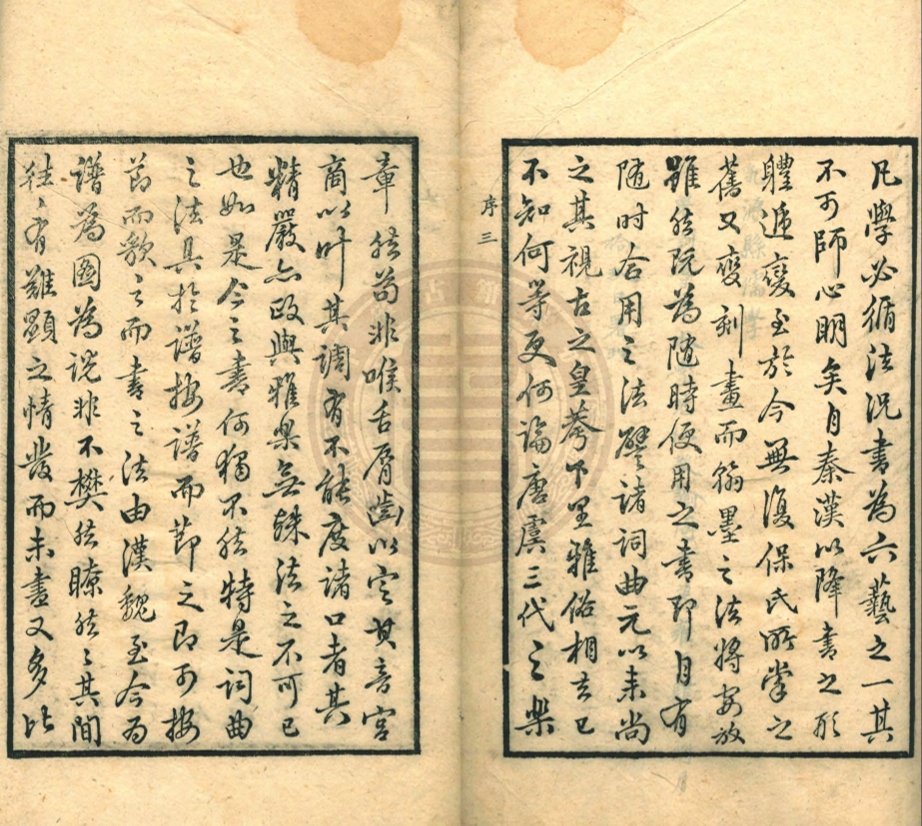 凡學必循法況書為六藝之一其
不可師心明矣自秦漢以降書之形
體遞變至於今無復保氏所掌之
舊又變刻畫而翰墨之法將安放
雖然既為隨時便用之書即自有
随时合用之法譬諸詞曲元以来尚
之其視古之皇荂下里雅俗相去已
不知何等更何論唐虞三代之樂
序三
章然苟非喉舌脣齒以定其音宮
商以叶其調有不能度諸口者其
精嚴亦政與雅樂無殊法之不可已
也如是今之書何獨不然特是詞曲
之法具於譜按譜而節之即可按
節而歌之而書之法由漢魏至今為
譜為圖為說非不樊然瞭然之其間
往往有難顯之情發而未盡又多比